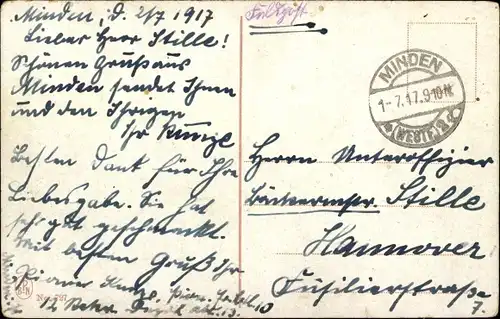 Minden, d. 2/7 1917
Lieber Herr Stille!
Schönen Gruß aus
Minden sendet Ihnen
und den Ihrigen
Ihr Kunze
Besten Dank für Ihre
Liebesgabe. Sie hat
sehr gut geschmeckt.
Mit bestem Gruß Ihr
Pionier Kunze, Pion. Batl. 10
No. 797
Feldpost
MINDEN
1-7.17.9-10V.
(WESTF)
Herrn Unteroffizier
Bäckermstr. Stille
Hannover
Füsilierstraße
7.